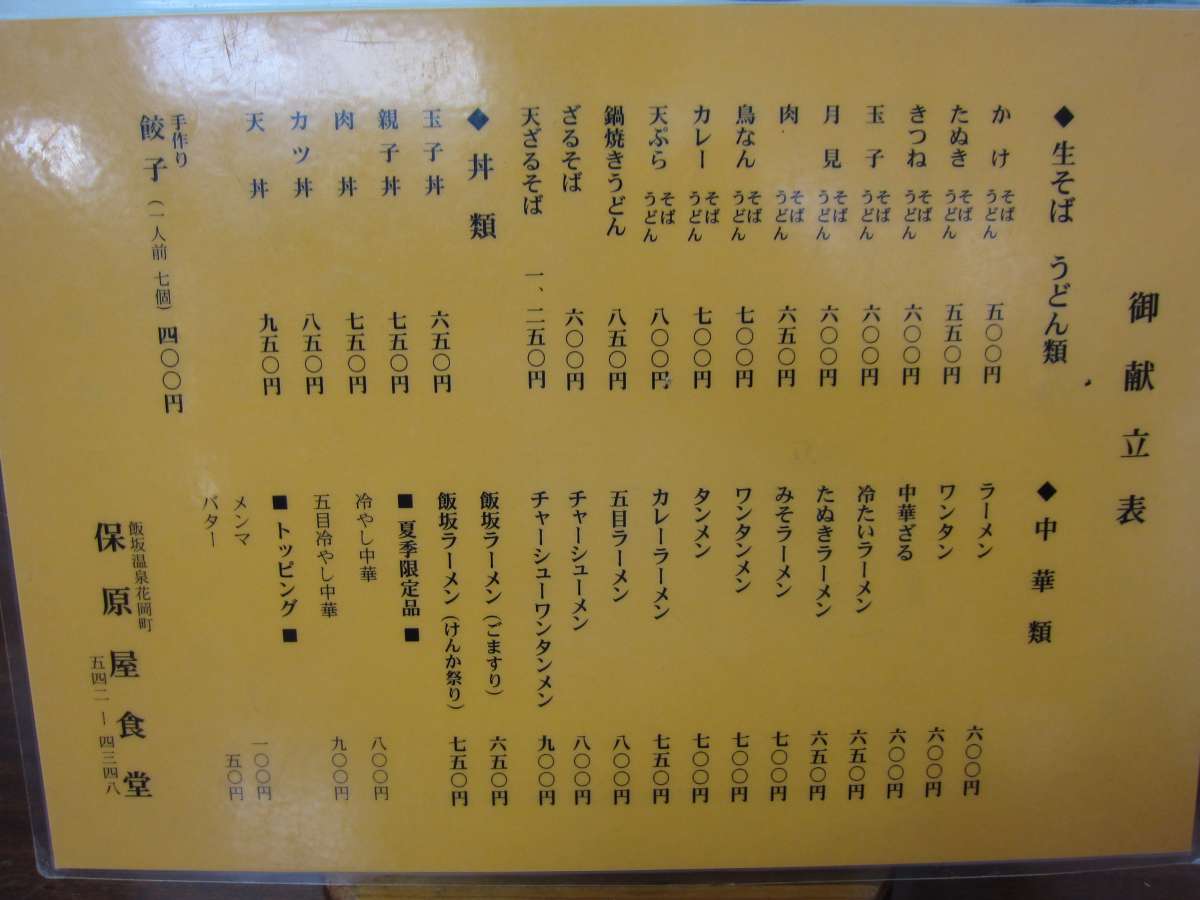 御献立表
◆生そば うどん類
かけ そば うどん 五〇〇円
たぬき そば うどん 五五〇円
きつね そば うどん 六〇〇円
玉子 そば うどん 六〇〇円
月見 そば うどん 六〇〇円
肉 そば うどん 六五〇円
鳥なん そば うどん 七〇〇円
カレー そば うどん 七〇〇円
天ぷら そば うどん 八〇〇円
鍋焼きうどん 八五〇円
ざるそば 六〇〇円
天ざるそば 一、二五〇円
◆丼類
玉子丼 六五〇円
親子丼 七五〇円
肉丼 七五〇円
カツ丼 八五〇円
天丼 九五〇円
手作り
餃子(一人前 七個) 四〇〇円
◆中華類
ラーメン 六〇〇円
ワンタン 六〇〇円
中華ざる 六〇〇円
冷たいラーメン 六五〇円
たぬきラーメン 六五〇円
みそラーメン 七〇〇円
ワンタンメン 七〇〇円
タンメン 七〇〇円
カレーラーメン 七五〇円
五目ラーメン 八〇〇円
チャーシューメン 八〇〇円
チャーシューワンタンメン 九〇〇円
飯坂ラーメン(ごますり) 六五〇円
飯坂ラーメン(けんか祭り) 七五〇円
■夏季限定品■
冷やし中華 八〇〇円
五目冷やし中華 九〇〇円
■トッピング■
メンマ 一〇〇円
バター 五〇円
飯坂温泉花岡町
保原屋食堂
五四二ー四三四八